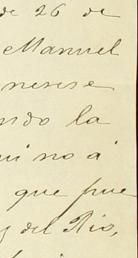 de 26 de
Manuel
nerse
ndo la
ui no á
que pue
y del Rio,